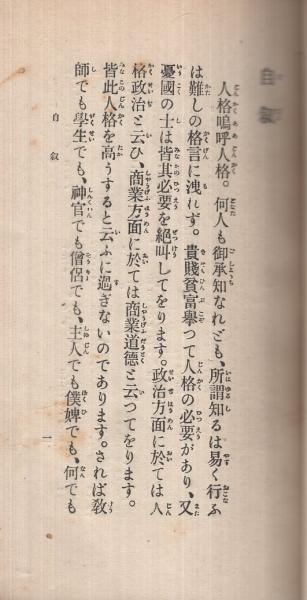 自叙
人格嗚呼人格。何人も御承知なれども、所謂知るは易く行ふ
は難しの格言に洩れず。貴賤貧富擧つて人格の必要があり、又
憂國の士は皆其必要を絶叫してをります。政治方面に於ては人
格政治と云ひ、商業方面に於ては商業道德と云つてをります。
皆此人格を高うすると云ふに過ぎないのであります。されば教
師でも學生でも、神官でも僧侶でも、主人でも僕婢でも、何でも
自叙
一